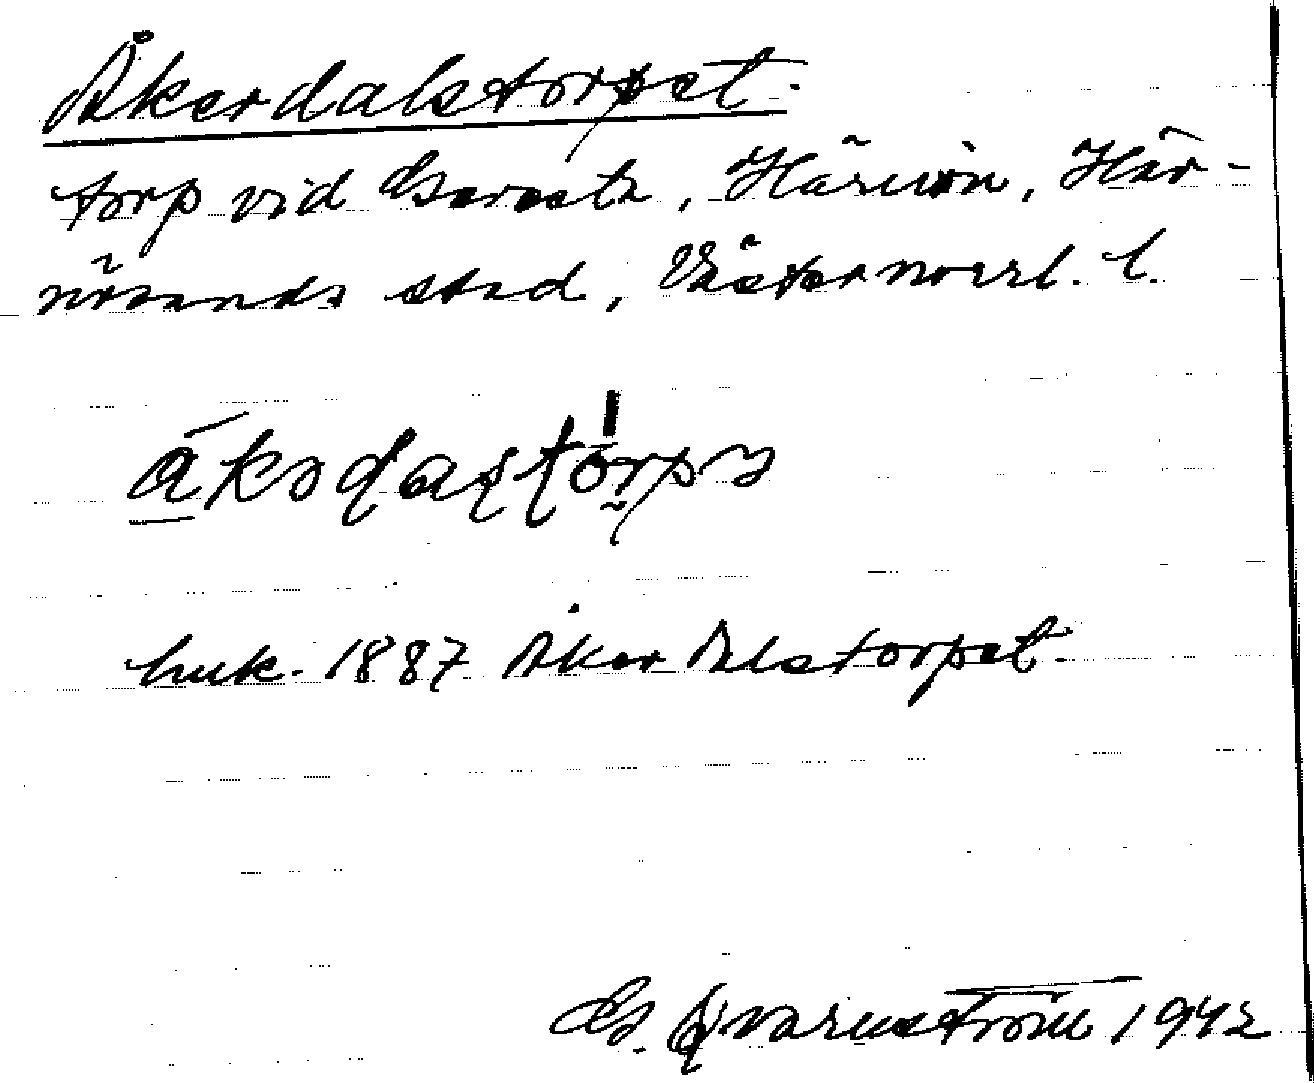 Åkerdalstorpet.
torp vid Geresta, Härnön, Här-
nösands stad, Västernorrl. l.
huk. 1887 Åkerdalstorpet.
G. Qvarnström 1942